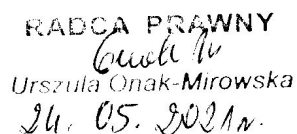 RADCA PRAWNY
Urszula Onak-Mirowska
24. 05. 2021 r.